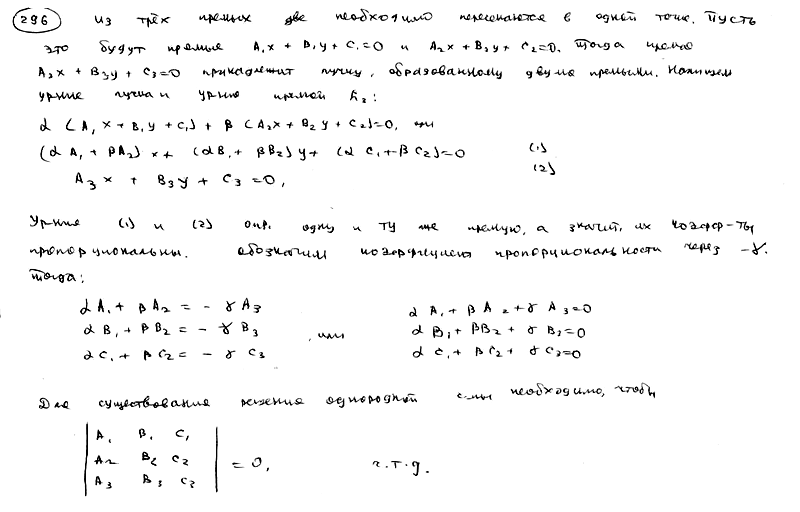 296 Из трёх прямых две необходимо пересекаются в одной точке. Пусть
это будут прямые A₁x + B₁y + C₁=0 и A₂x + B₂y + C₂=0. Тогда прямая
A₃x + B₃y + C₃=0 принадлежит пучку, образованному двумя прямыми. Напишем
ур-ние пучка и ур-ние прямой :
α (A₁x + B₁y + C₁) + β (A₂x + B₂y + C₂)=0, или
(α A₁ + βA₂) x + (αB₁ + βB₂) y + (α C₁ + β C₂)=0 (1)
A₃x + B₃y + C₃=0, (2)
Ур-ние (1) и (2) опр. одну и ту же прямую, а значит, их коэфф-ты
пропорциональны. Обозначим коэффициент пропорциональности через -γ.
Тогда:
α A₁ + β A₂ = - γ A₃ α A₁ + β A₂ + γ A₃=0
α B₁ + β B₂ = - γ B₃ , или α B₁ + βB₂ + γ B₃=0
α C₁ + β C₂ = - γ C₃ α C₁ + β C₂ + γ C₃=0
Для существования решения однородной с-мы необходимо, чтобы
| A₁ B₁ C₁ |
| A₂ B₂ C₂ | = 0, ч.т.д.
| A₃ B₃ C₃ |